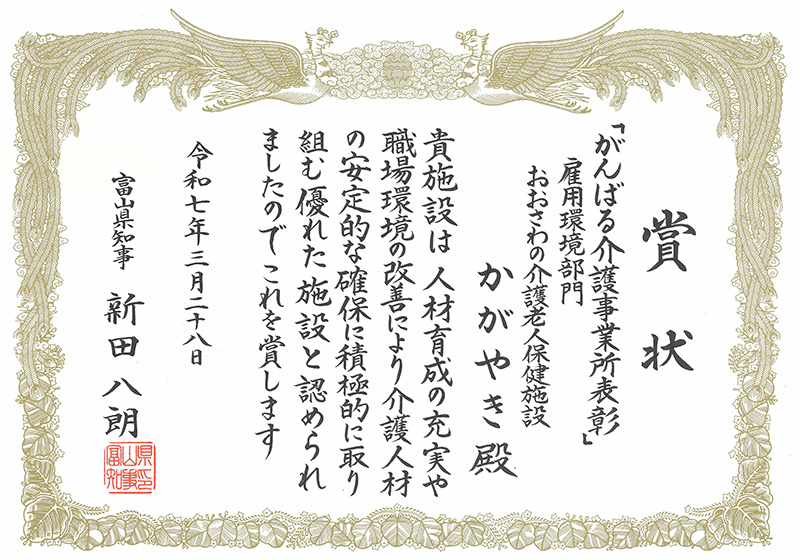 賞状
「がんばる介護事業所表彰」
雇用環境部門
おおさわの介護老人保健施設
かがやき殿
貴施設は人材育成の充実や
職場環境の改善により介護人材
の安定的な確保に積極的に取り
組む優れた施設と認められ
ましたのでこれを賞します
令和七年三月二十八日
富山県知事 新田八朗
富山県知事印